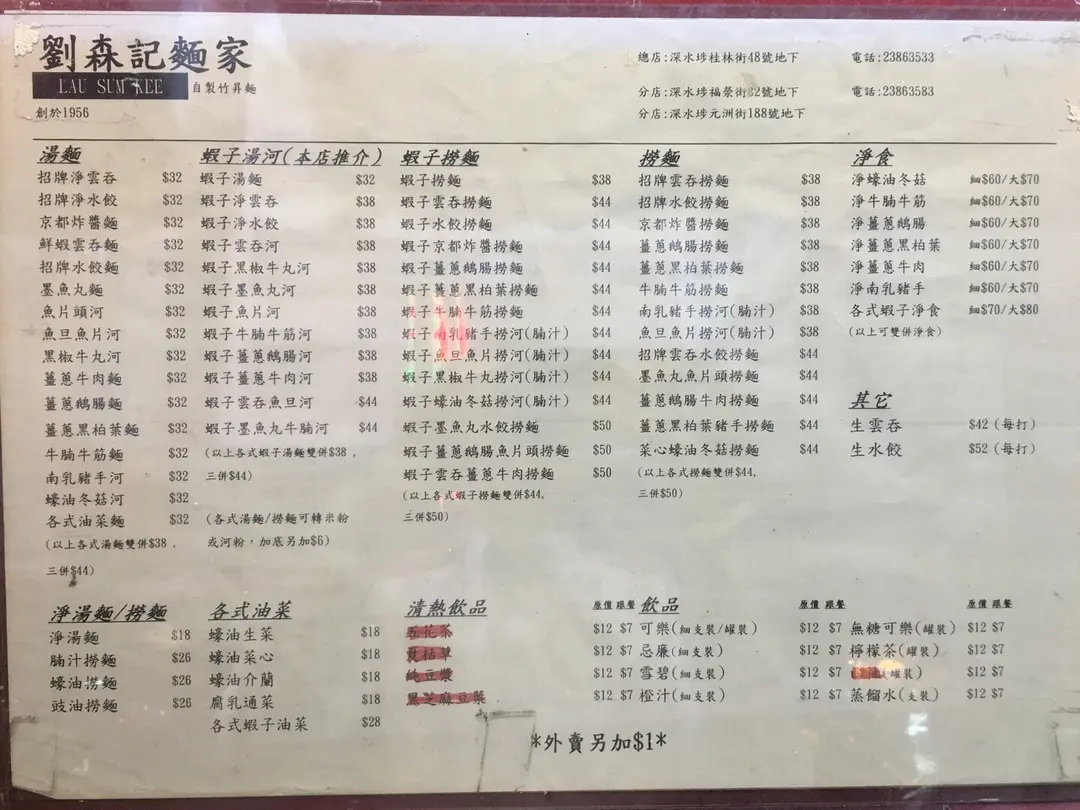 劉森記麵家
LAU SUM KEE 自製竹昇麵
創於1956
總店:深水埗桂林街48號地下 電話:23863533
分店:深水埗福榮街82號地下 電話:23863583
分店:深水埗元洲街188號地下
湯麵
招牌淨雲吞 $32
招牌淨水餃 $32
京都炸醬麵 $32
鮮蝦雲吞麵 $32
招牌水餃麵 $32
墨魚丸麵 $32
魚片頭河 $32
魚旦魚片河 $32
黑椒牛丸河 $32
薑蔥牛肉麵 $32
薑蔥鵝腸麵 $32
薑蔥黑柏葉麵 $32
牛腩牛筋麵 $32
南乳豬手河 $32
蠔油冬菇河 $32
各式油菜麵 $32
(以上各式湯麵雙併$38，
三併$44)
蝦子湯河(本店推介)
蝦子湯麵 $32
蝦子淨雲吞 $38
蝦子淨水餃 $38
蝦子雲吞河 $38
蝦子黑椒牛丸河 $38
蝦子墨魚丸河 $38
蝦子魚片河 $38
蝦子牛腩牛筋河 $38
蝦子薑蔥鵝腸河 $38
蝦子薑蔥牛肉河 $38
蝦子雲吞魚旦河 $44
蝦子墨魚丸牛腩河 $44
(以上各式蝦子湯麵雙併$38，
三併$44)
(各式湯麵/撈麵可轉米粉
或河粉，加底另加$6)
蝦子撈麵
蝦子撈麵 $38
蝦子雲吞撈麵 $44
蝦子水餃撈麵 $44
蝦子京都炸醬撈麵 $44
蝦子薑蔥鵝腸撈麵 $44
蝦子薑蔥黑柏葉撈麵 $44
蝦子牛腩牛筋撈麵 $44
蝦子南乳豬手撈河(腩汁) $44
蝦子魚旦魚片撈河(腩汁) $44
蝦子黑椒牛丸撈河(腩汁) $44
蝦子蠔油冬菇撈河(腩汁) $44
蝦子墨魚丸水餃撈麵 $50
蝦子薑蔥鵝腸魚片頭撈麵 $50
蝦子雲吞薑蔥牛肉撈麵 $50
(以上各式蝦子撈麵雙併$44，
三併$50)
撈麵
招牌雲吞撈麵 $38
招牌水餃撈麵 $38
京都炸醬撈麵 $38
薑蔥鵝腸撈麵 $38
薑蔥黑柏葉撈麵 $38
牛腩牛筋撈麵 $38
南乳豬手撈河(腩汁) $38
魚旦魚片撈河(腩汁) $38
招牌雲吞水餃撈麵 $44
墨魚丸魚片頭撈麵 $44
薑蔥鵝腸牛肉撈麵 $44
薑蔥黑柏葉豬手撈麵 $44
菜心蠔油冬菇撈麵 $44
(以上各式撈麵雙併$44，
三併$50)
淨食
淨蠔油冬菇 細$60/大$70
淨牛腩牛筋 細$60/大$70
淨薑蔥鵝腸 細$60/大$70
淨薑蔥黑柏葉 細$60/大$70
淨薑蔥牛肉 細$60/大$70
淨南乳豬手 細$60/大$70
各式蝦子淨食 細$70/大$80
(以上可雙併淨食)
其它
生雲吞 $42 (每打)
生水餃 $52 (每打)
淨湯麵/撈麵
淨湯麵 $18
腩汁撈麵 $26
蠔油撈麵 $26
豉油撈麵 $26
各式油菜
蠔油生菜 $18
蠔油菜心 $18
蠔油介蘭 $18
腐乳通菜 $18
各式蝦子油菜 $28
清熱飲品 原價 跟餐
五花茶 $12 $7
夏枯草 $12 $7
純豆漿 $12 $7
黑芝麻豆漿 $12 $7
飲品 原價 跟餐
可樂(細支裝/罐裝) $12 $7
忌廉(細支裝) $12 $7
雪碧(細支裝) $12 $7
橙汁(細支裝) $12 $7
原價 跟餐
無糖可樂(罐裝) $12 $7
檸檬茶(罐裝) $12 $7
(罐裝) $12 $7
蒸餾水(支裝) $12 $7
*外賣另加$1*